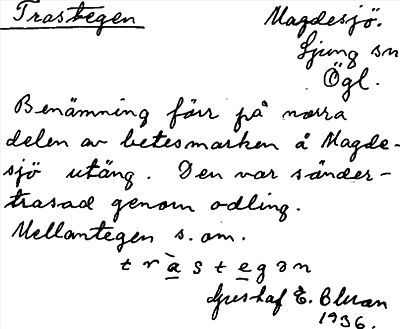 Trastegen
Magdesjö.
Ljung sn
Ögl.
Benämning förr på norra
delen av betesmarken å Magde-
sjö utäng. Den var sönder-
trasad genom odling.
Mellantegen s. om.
t r à s t e g ə n
Gustaf E. Bluan
1936.